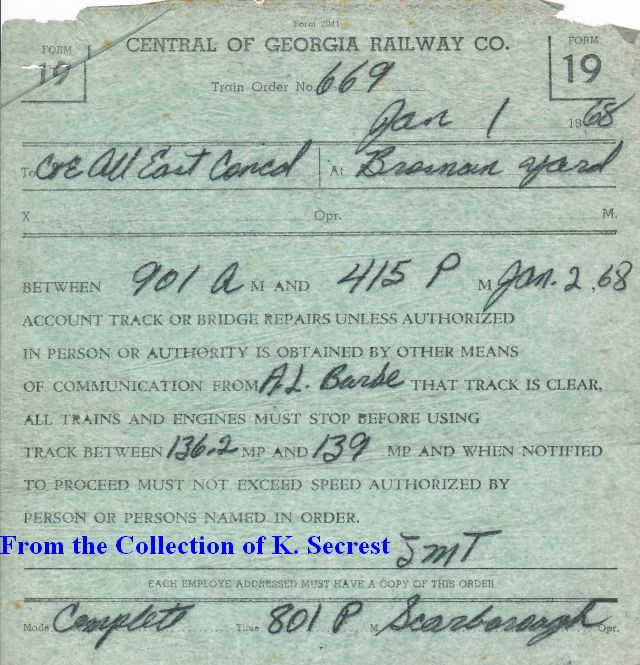 Form 2041
FORM 19 CENTRAL OF GEORGIA RAILWAY CO. FORM 19
Train Order No. 669
Jan 1 1968
To C&E All East Concd At Brosnan yard
X Opr. M.
BETWEEN 901 A M AND 415 P M Jan. 2, 68
ACCOUNT TRACK OR BRIDGE REPAIRS UNLESS AUTHORIZED
IN PERSON OR AUTHORITY IS OBTAINED BY OTHER MEANS
OF COMMUNICATION FROM A.L. Barbe THAT TRACK IS CLEAR,
ALL TRAINS AND ENGINES MUST STOP BEFORE USING
TRACK BETWEEN 136.2 MP AND 139 MP AND WHEN NOTIFIED
TO PROCEED MUST NOT EXCEED SPEED AUTHORIZED BY
PERSON OR PERSONS NAMED IN ORDER.
From the Collection of K. Secrest
EACH EMPLOYE ADDRESSED MUST HAVE A COPY OF THIS ORDER
Made Complete Time 801 P M Scarborough Opr.